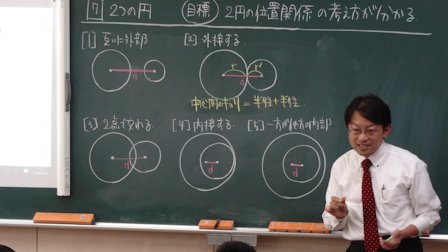 7 2つの円 目標 2円の位置関係の考え方が分かる
[1] 互いに外部 [2] 外接する
d r r' d
中心間のキョリ = 半径+半径
[3] 2点で交わる [4] 内接する [5] 一方が他方の内部
d d d